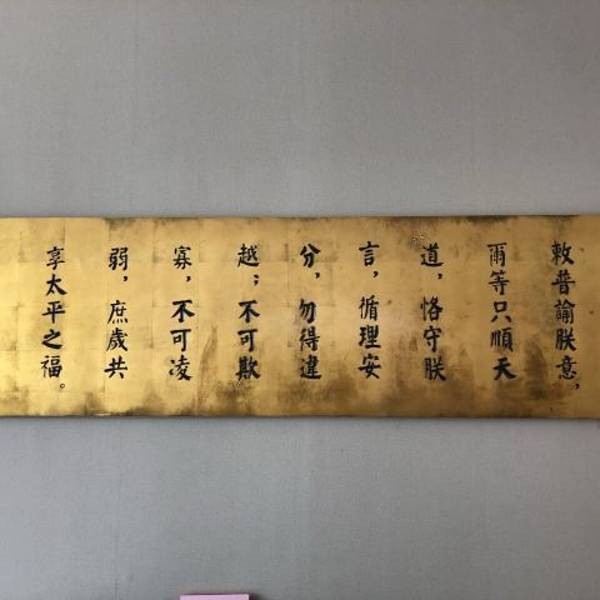 敕普諭朕意，
爾等只順天
道，恪守朕
言，循理安
分，勿得違
越；不可欺
寡，不可凌
弱，庶歲共
享太平之福。